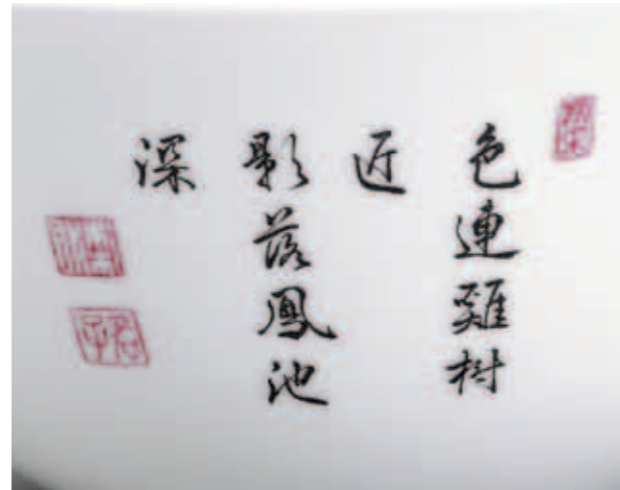 色連雞樹
近
影落鳳池
深